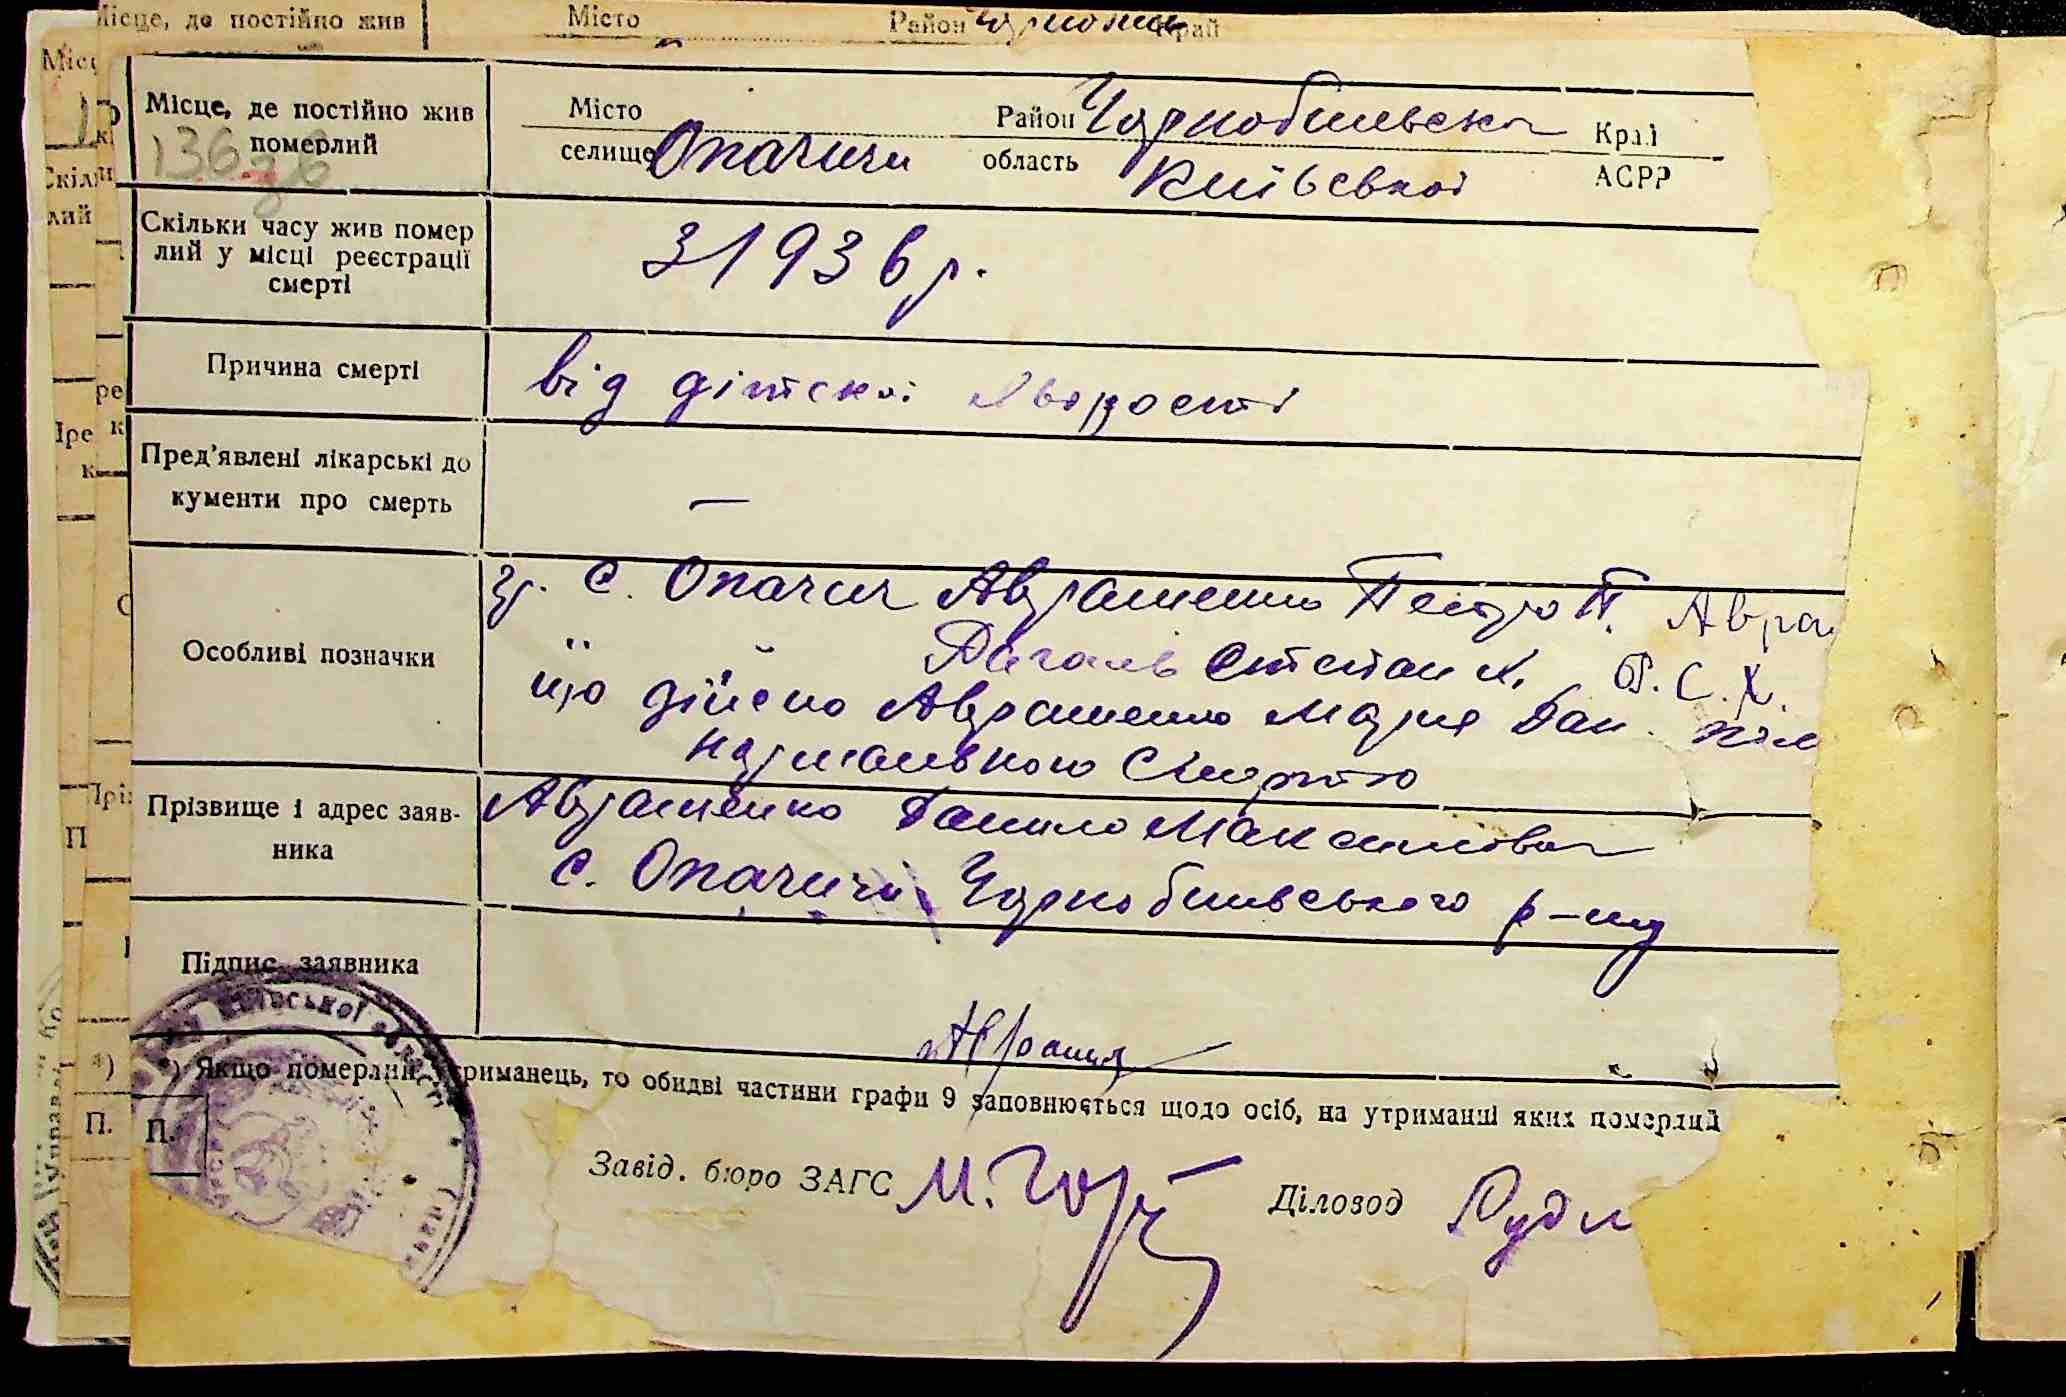 Місце, де постійно жив
Місто
Район
край
Місце, де постійно жив
померлий
136зв
Місто
селище Опачичи
Район Чорнобильська
область Київської
Край
АСРР
Скільки часу жив помер
лий у місці реєстрації
смерті
З 1936 р.
Причина смерті
від дітскої хворості
Пред'явлені лікарські до
кументи про смерть
—
Особливі позначки
гр. С. Опачич Авраменко Петро П. Авра
Степан К. С. Х.
що дійсно Авраменко Марія Дан. пом
нормальною смертю
Прізвище і адрес заяв-
ника
Авраменко Данило Максимович
с. Опачичи Чорнобильського р-ну
Підпис заявника
Якщо померлий утриманець, то обидві частини графи 9 заповнюється щодо осіб, на утриманні яких померлий
П.
П.
Завід. бюро ЗАГС М. Гор
Діловод Руди